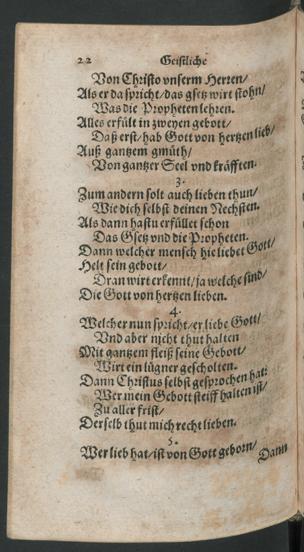 22 Geistliche
Von Christo vnserm Herren/
Als er da spricht/das gsetz wirt stohn/
Was die Propheten lehren.
Alles erfült in zweyen gebott/
Daß erst/hab Gott von hertzen lieb/
Auß gantzem gmüth/
Von gantzer Seel vnd kräfften.
3.
Zum andern solt auch lieben thun/
Wie dich selbst deinen Nechsten.
Als dann hastu erfüllet schon
Das Gsetz vnd die Propheten.
Dann welcher mensch hie liebet Gott/
Helt sein gebott/
Dran wirt erkennt/ja welche sind/
Die Gott von hertzen lieben.
4.
Welcher nun spricht/er liebe Gott/
Vnd aber nicht thut halten
Mit gantzem fleiß seine Gebott/
Wirt ein lügner gescholten.
Dann Christus selbst gesprochen hat:
Wer mein Gebott steiff halten ist/
Zu aller frist/
Derselb thut mich recht lieben.
5.
Wer lieb hat/ist von Gott geborn/
Dann